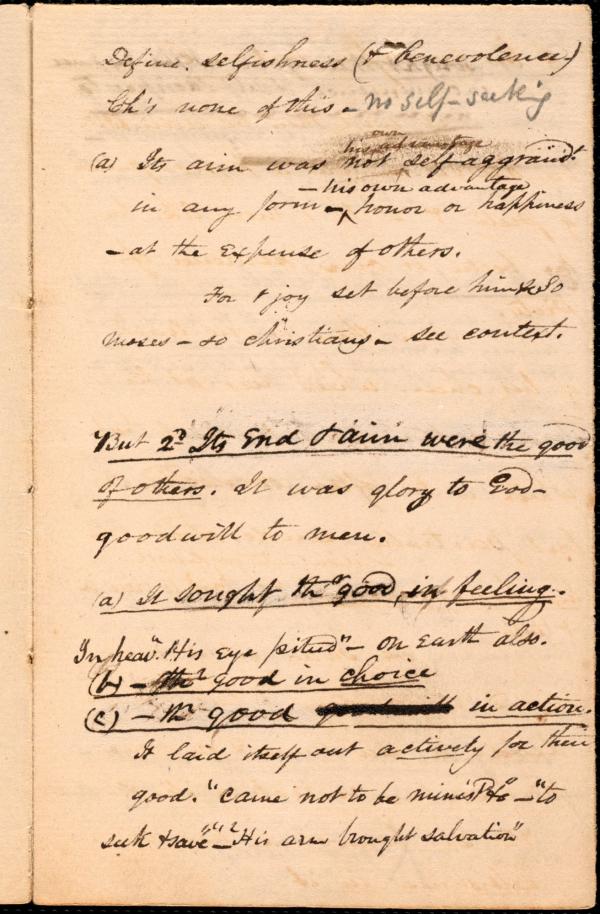 Define selfishness (& benevolence)
Ch's none of this - no self-seeking
own
his advantage
(a) Its aim was not self aggrand't
- his own advantage
in any form -^ honor or happiness
- at the expense of others.
For & joy set before him &c So
Moses - so Christians - see context.
But 2d Its End & aim were the good
of others. It was glory to God -
goodwill to men.
(a) It sought thr good in feeling.
In heav. "His Eye pitied" - on Earth also.
(b) - thr good in choice
(c) - thr good in action.
It laid itself out actively for their
good. "came not to be minist'd to" - "to
seek & save" - "His arm brought salvation"